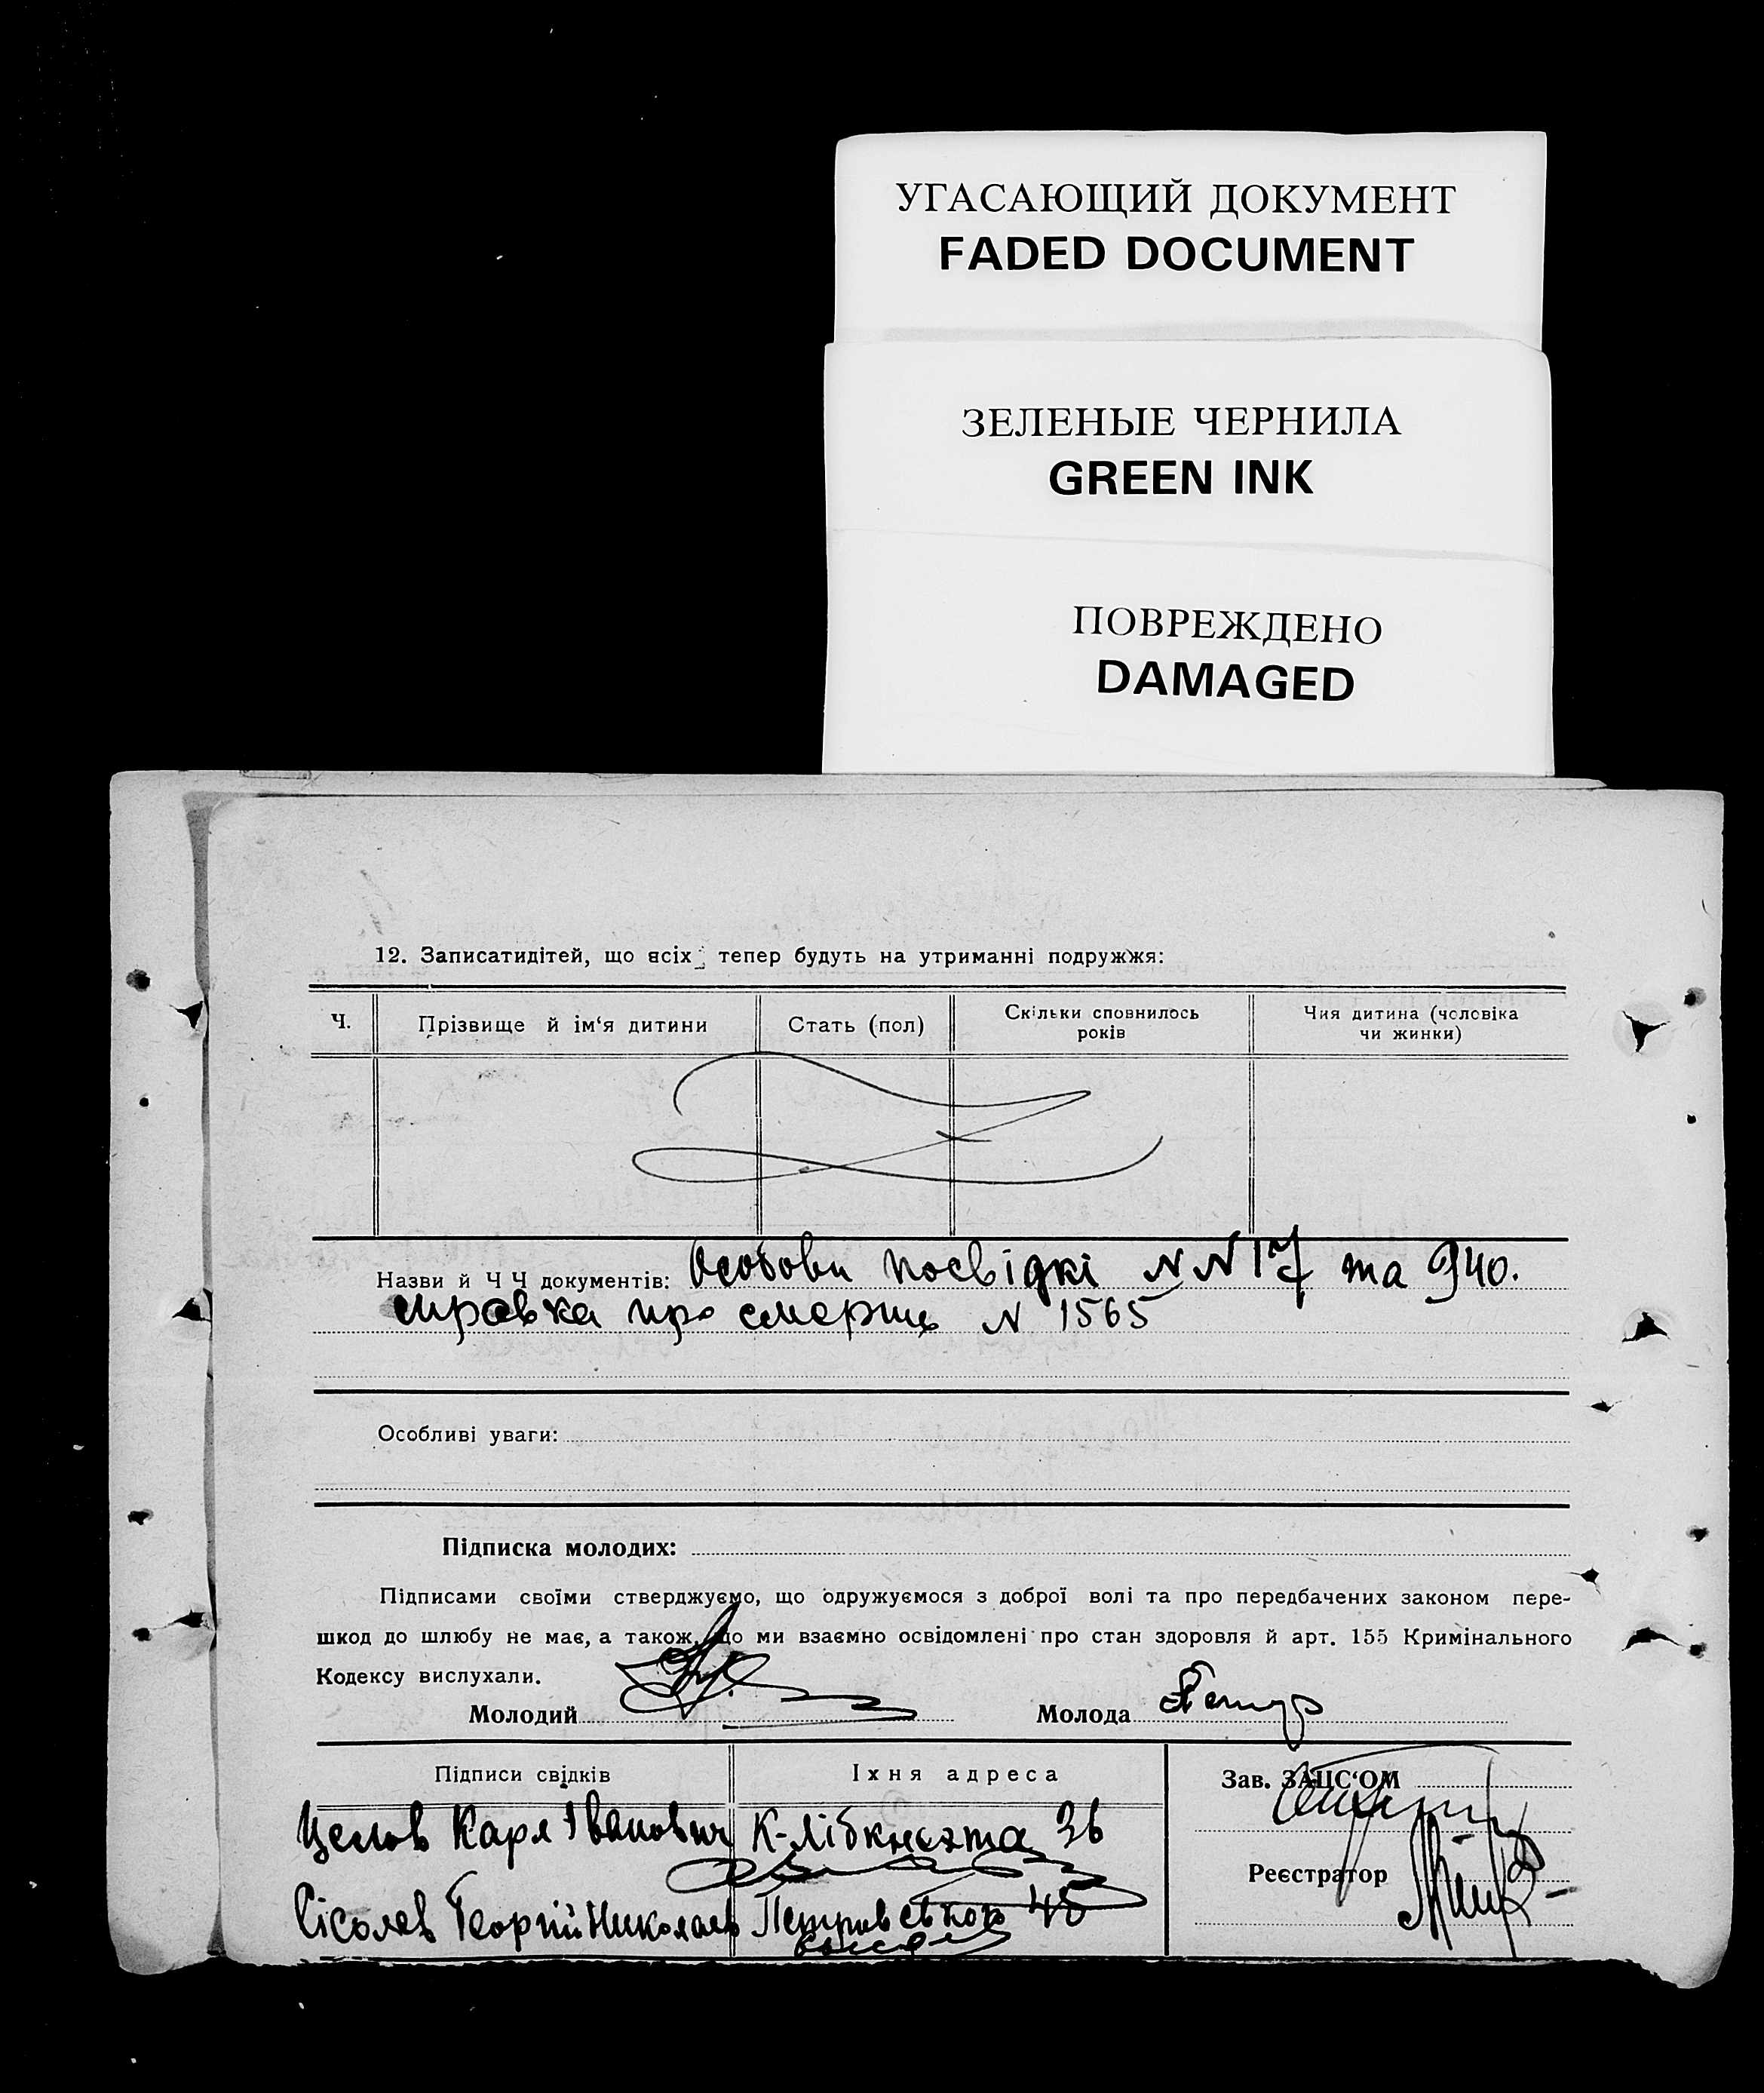 УГАСАЮЩИЙ ДОКУМЕНТ
FADED DOCUMENT
ЗЕЛЕНЫЕ ЧЕРНИЛА
GREEN INK
ПОВРЕЖДЕНО
DAMAGED
12. Записатидітей, що всіх тепер будуть на утриманні подружжя:
Ч.
Прізвище й ім‘я дитини
Стать (пол)
Скільки сповнилось
років
Чия дитина (чоловіка
чи жинки)
Назви й Ч Ч документів: Особови посвідкі N N 17 та 940.
справка про смерть N 1565
Особливі уваги:
Підписка молодих:
Підписами своїми стверджуємо, що одружуємося з доброї волі та про передбачених законом пере-
шкод до шлюбу не має, а також, що ми взаємно освідомлені про стан здоровля й арт. 155 Кримінального
Кодексу вислухали.
Молодий
Молода
Підписи свідків
Їхня адреса
Зав. ЗАЦС‘ОМ
Карл Іванович К-Лібкнехта 36
Реєстратор
Георгій Николаев 45